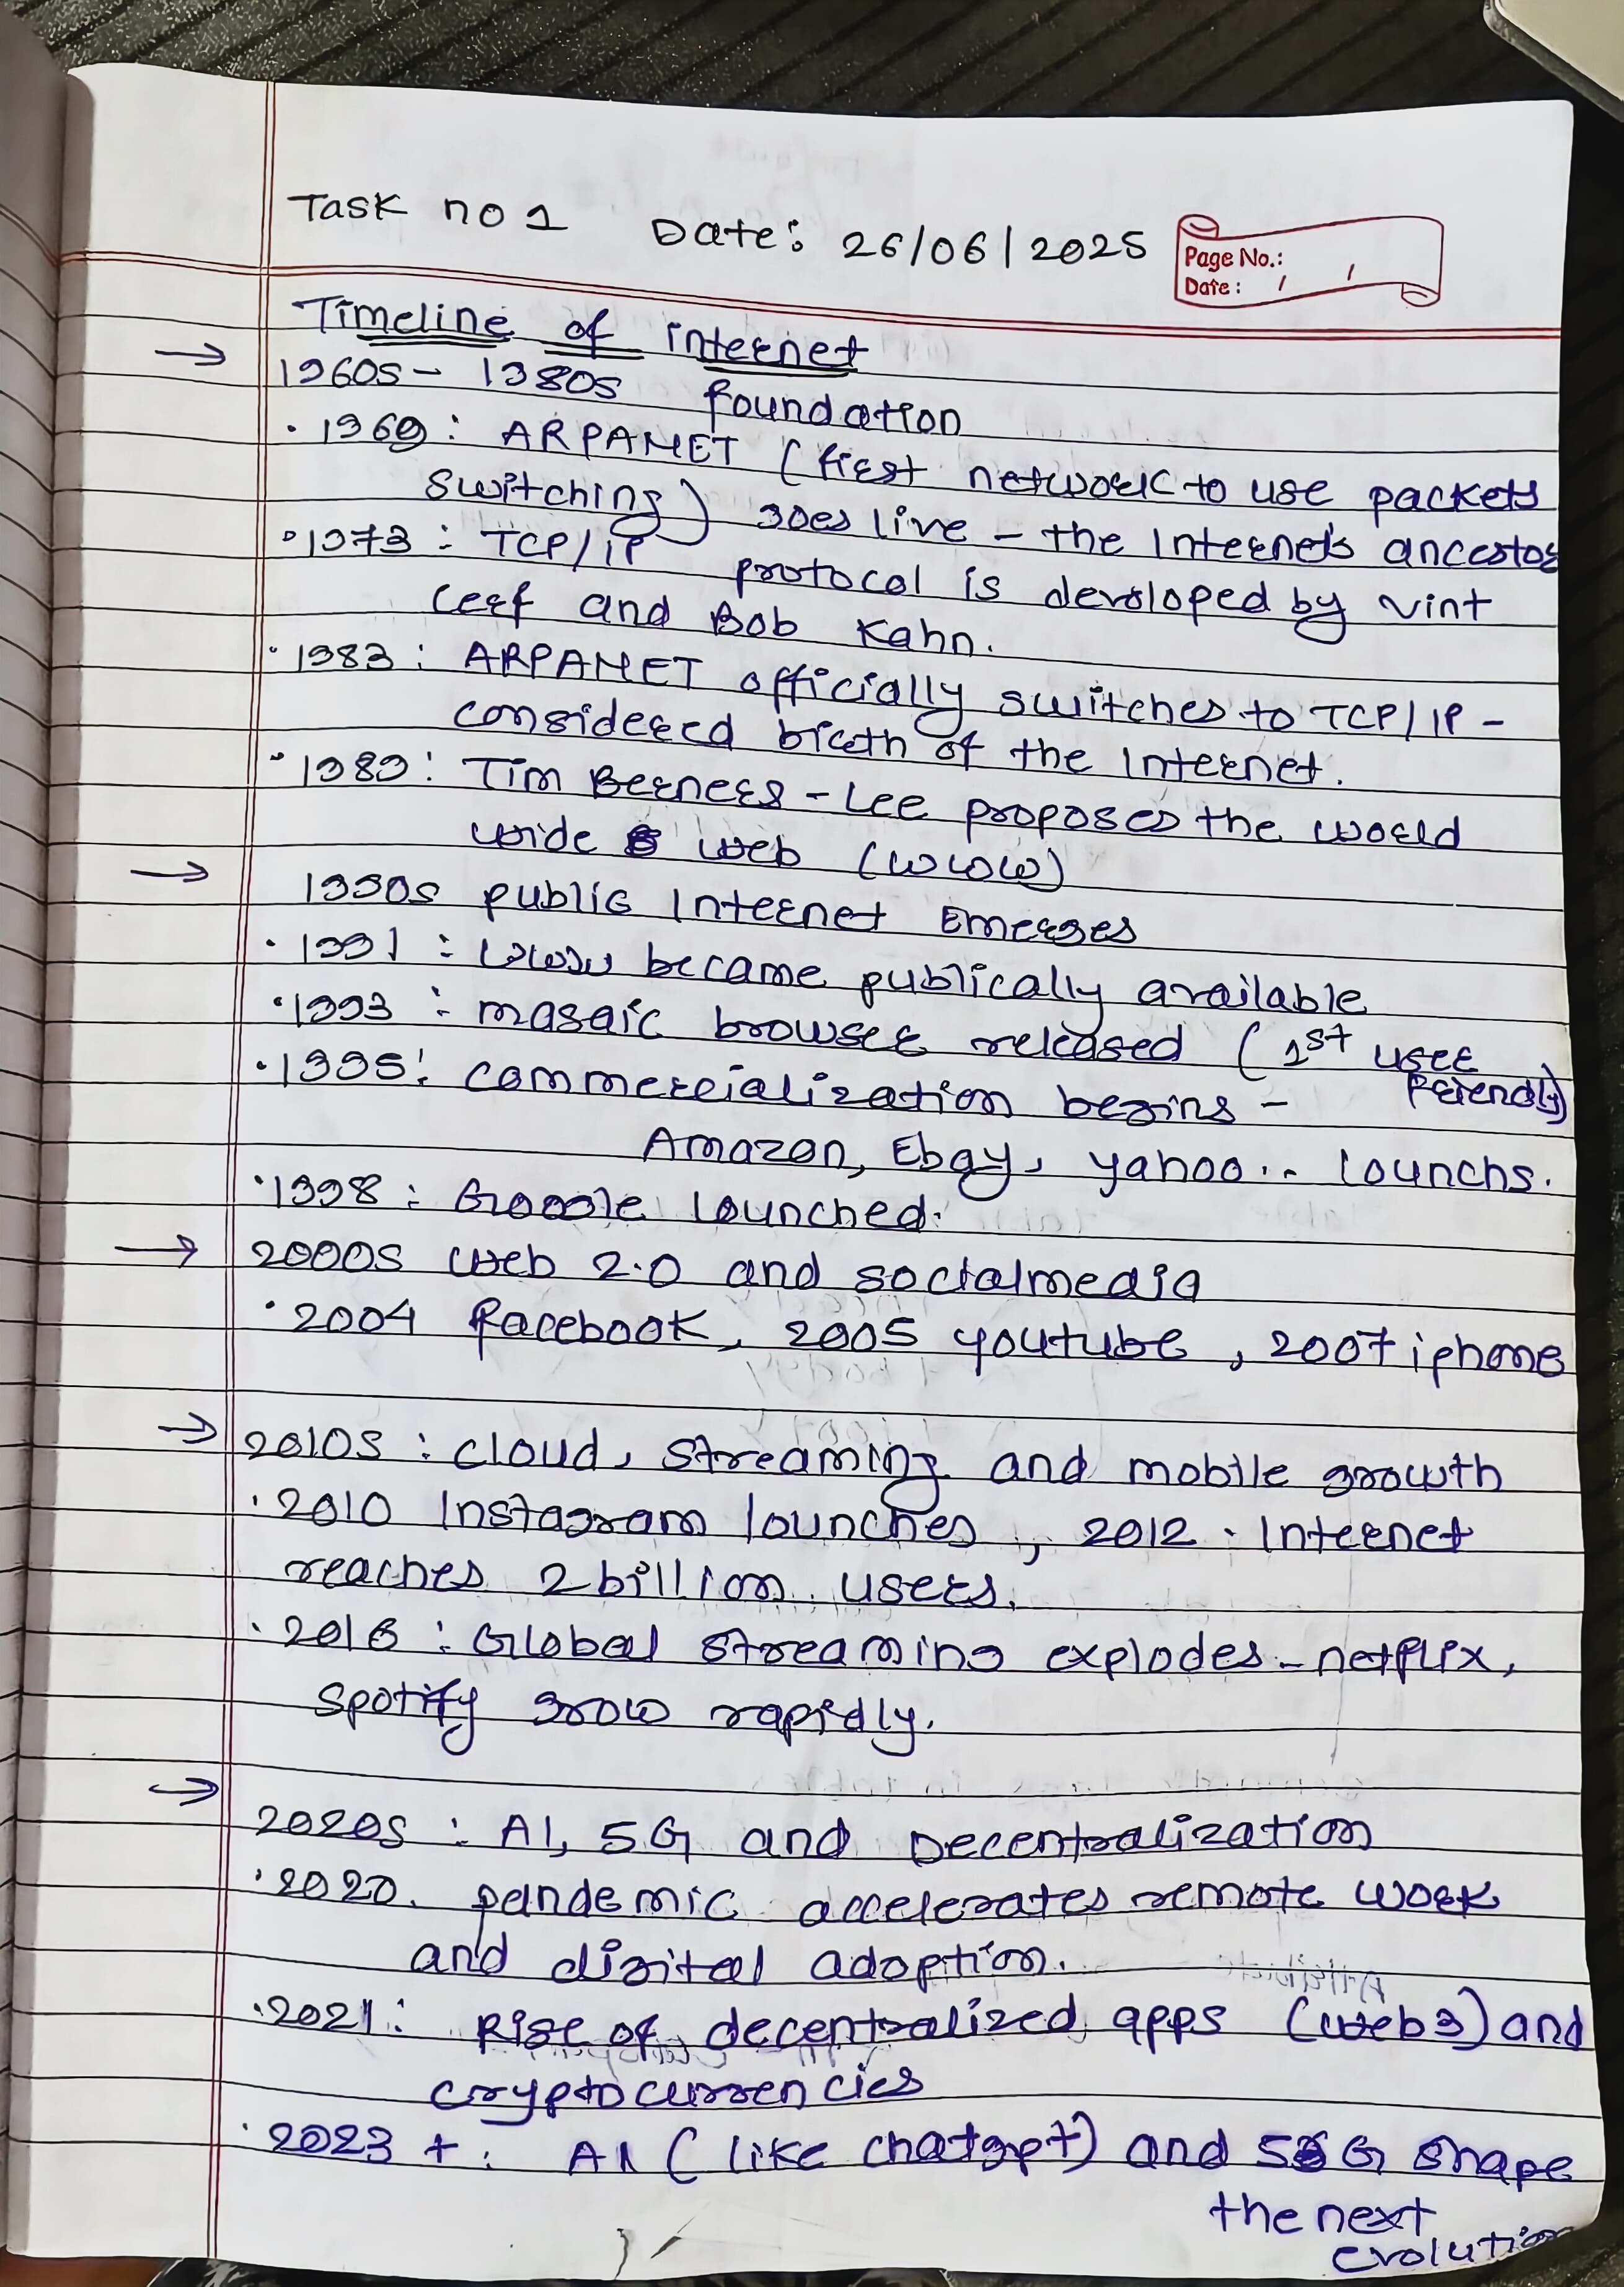 Task no 1 Date: 26/06/2025
Page No.:
Date: / /
Timeline of internet
→ 1960s - 1980s foundation
· 1969: ARPANET (first network to use packets
switching) goes live - the Internets ancestor
· 1973: TCP/IP protocol is developed by vint
Cerf and Bob Kahn.
· 1983: ARPANET officially switches to TCP/IP -
considered birth of the Internet.
· 1989: Tim Berners-Lee proposes the world
wide web (www)
→ 1990s public Internet Emerges
· 1991: www became publically available
· 1993: masaic browser released (1st user
friendly)
· 1995: commercialization begins -
Amazon, Ebay, yahoo.. lounchs.
· 1998: Google lounched.
→ 2000s web 2.0 and socialmedia
· 2004 facebook, 2005 youtube, 2007 iphone
→ 2010s: cloud, streaming and mobile growth
· 2010 Instagram lounches, 2012. Internet
reaches 2 billion users.
· 2016: Global streaming explodes - netflix,
spotify grow rapidly.
→ 2020s: AI, 5G and Decentralization
· 2020. pandemic accelerates remote work
and digital adoption.
· 2021: Rise of decentralized apps (web3) and
cryptocurrencies
· 2023 +: AI (like chatgpt) and 5G shape
the next
evolution